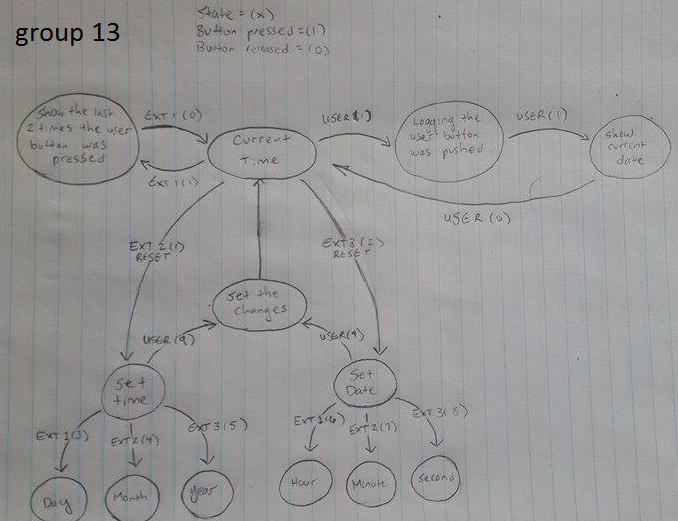 group 13
State = (x)
Button pressed = (1)
Button released = (0)
Show the last
2 times the user
button was
pressed
EXT 1 (0)
EXT 1 (1)
Current
Time
USER (1)
Logging the
user button
was pushed
USER (1)
Show
current
date
USER (0)
EXT 2 (1)
RESET
EXT 3 (2)
RESET
Set the
changes
USER (9)
USER (9)
Set
time
Set
Date
EXT 1 (3)
EXT 2 (4)
EXT 3 (5)
EXT 1 (6)
EXT 2 (7)
EXT 3 (8)
Day
Month
Year
Hour
Minute
Second